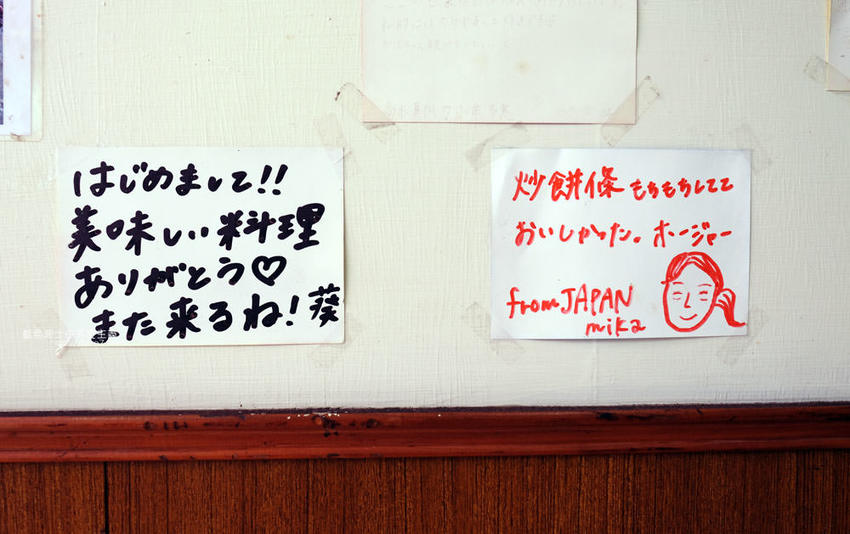 はじめまして!!
美味しい料理
ありがとう♡
また来るね! 葵
炒餅條 もちもちしてて
おいしかった。ホージャー
from JAPAN
mika